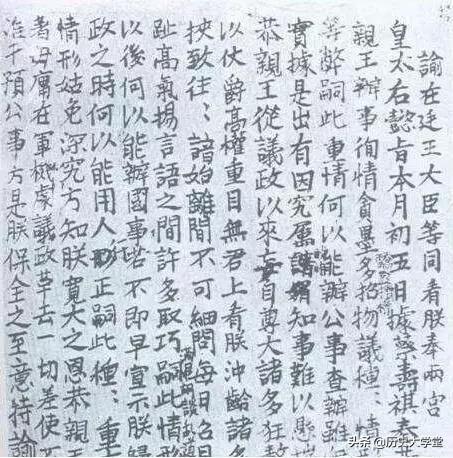 諭在廷王大臣等同看朕奉兩宮
皇太后懿旨本月初五日據蔡壽祺奏
親王辦事徇情貪墨多招物議種：情
等弊嗣此重情何以能辦公事查辦雖
實據是出有因究屬知事難以懸
恭親王從議政以來妄自尊大諸多狂
以仗爵高權重目無君上看朕沖齡諸
挾致往：諳始離間不可細問每日召
趾高氣揚言語之間許多取巧嗣此情形
以後何以能辦國事若不即早宣示朕歸
政之時何以能用人行正嗣此種：重
情形姑免深究方知朕寬大之恩恭親王
著毋庸在軍機處議政革去一切差使不
准干預公事方是朕保全之至意特諭
头条 @历史大学堂